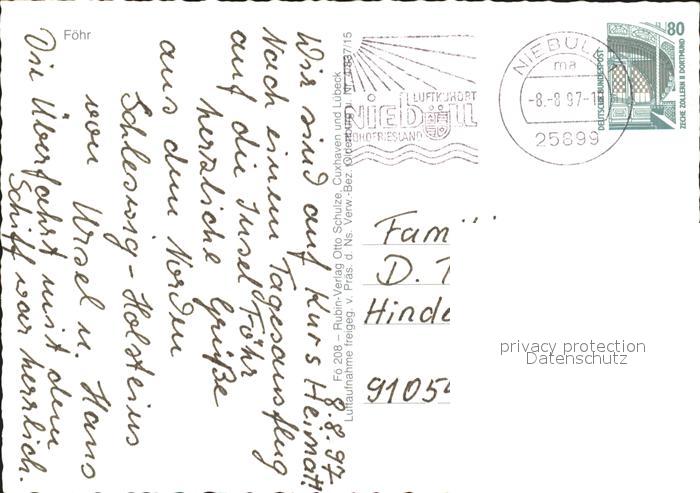 Föhr
8.8.97
Wir sind auf Kurs Heimat!
Nach einem Tagesausflug
auf die Insel Föhr
herzliche Grüße
aus dem Norden
Schleswig-Holsteins
von Ursel u. Hans
Die Überfahrt mit dem
Schiff war herrlich.
Fö 208 – Rubin-Verlag Otto Schulze, Cuxhaven und Lübeck
Luftaufnahme freigeg. v. Präs. d. Ns. Verw.-Bez. Oldenburg u. Nr. 4837/15
LUFTKURORT
NIEBÜLL
NORDFRIESLAND
NIEBÜLL
ma
-8.-8 97-1
25899
80
DEUTSCHE BUNDESPOST
ZECHE ZOLLERN II DORTMUND
Fam
D.
Hinde
9105
privacy protection
Datenschutz